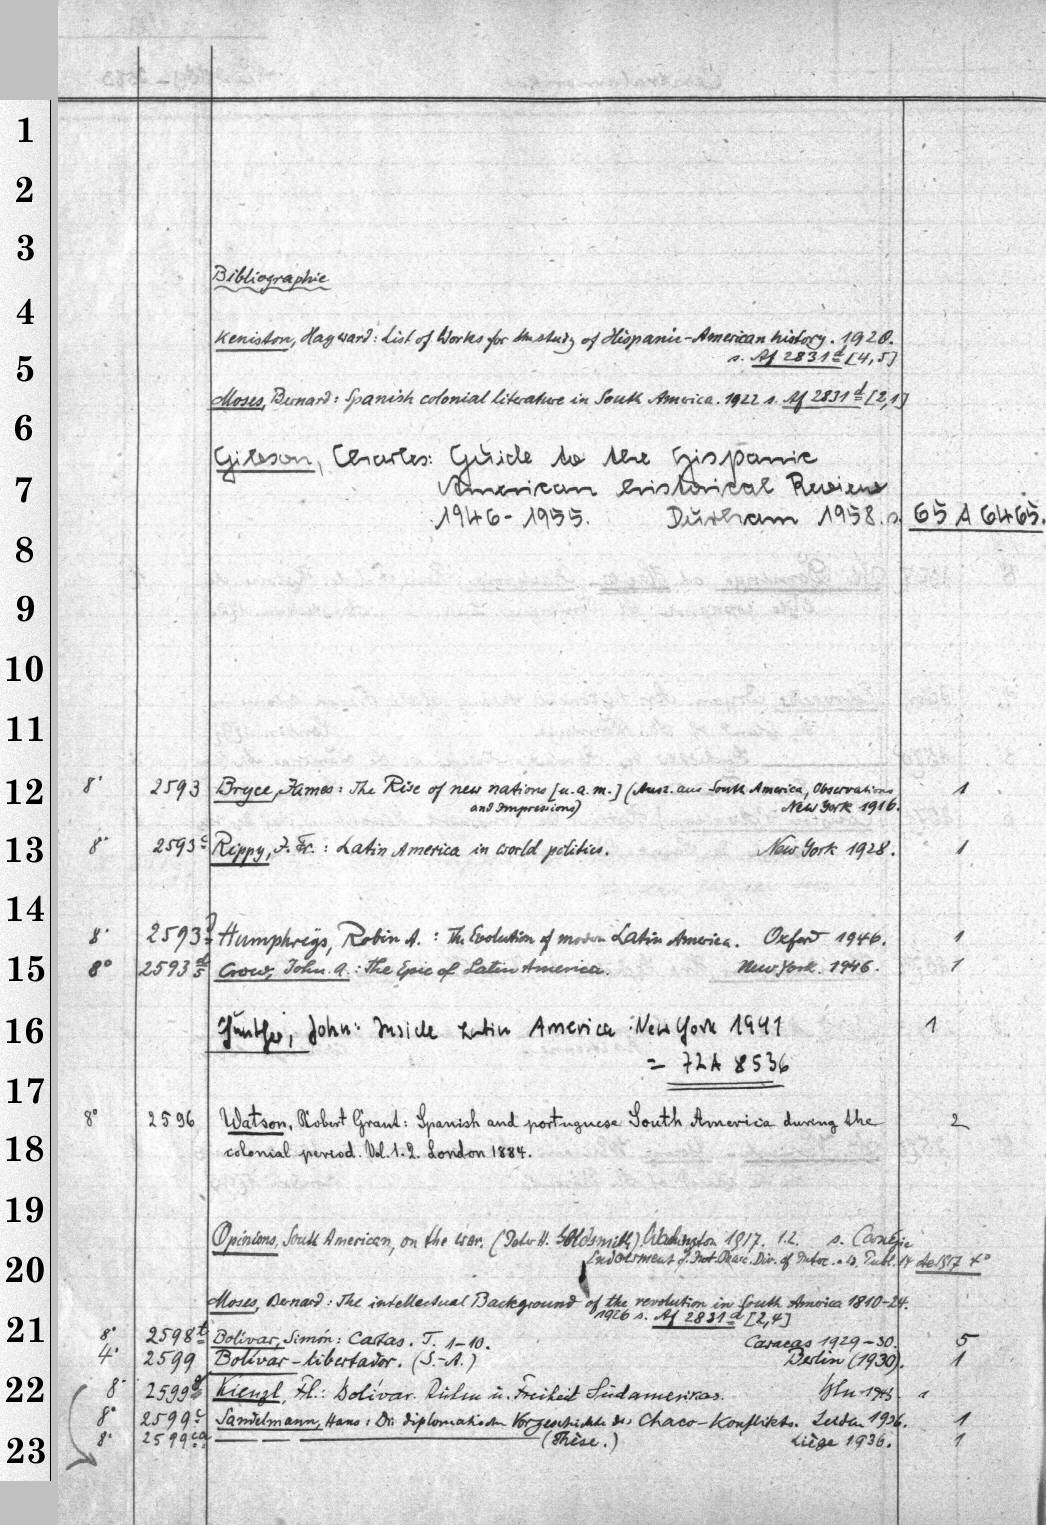 1
2
3
Bibliographie
4
Keniston, Hayward: List of Works for the study of Hispanic-American history. 1920.
5
s. Af 2831 d [4,5]
Moses, Bernard: Spanish colonial literature in South America. 1922 s. Af 2831 d [2,1]
6
Gibson, Charles: Guide to the Hispanic
7
American historical Review
1946-1955. Durham 1958. s. 65 A 6465.
8
9
10
11
12 8° 2593 Bryce, James: The Rise of new nations [u.a.m.] (Ausz. aus South America, Observations 1
and Impressions) New York 1916.
13 8° 2593 c Rippy, J. Fr.: Latin America in world politics. New York 1928. 1
14
8° 2593 Humphreys, Robin A.: The Evolution of modern Latin America. Oxford 1946. 1
15 8° 2593 d 5 Crow, John A.: The Epic of Latin America. New York. 1946. 1
16 Gunther, John: Inside Latin America: New York 1941 1
= 72A 8536
17
8° 2596 Watson, Robert Grant: Spanish and portuguese South America during the 2
18 colonial period. Vol. 1-2. London 1884.
19
Opinions, South American, on the war. (Peter H. Goldsmith) Washington 1917. s. Carnegie
20 Endowment f. Div. of Publ. 14
Moses, Bernard: The intellectual Background of the revolution in South America 1810-24.
1926 s. Af 2831 d [2,4]
21 8° 2598 t Bolívar, Simón: Cartas. T. 1-10. Caracas 1929-30. 5
4° 2599 Bolívar-libertador. (S.-A.) Berlin (1930). 1
22 8° 2599 Kienzl, Fl.: Bolívar. Ruhm u. Freiheit Südamerikas. Bln 1
8° 2599 c Sandelmann, Hans: Die diplomatische Vorgeschichte des Chaco-Konflikts. 1936. 1
23 8° 2599 ca — — (Thèse.) Liège 1936. 1